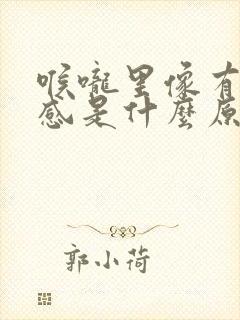 喉嚨里像有
感是什麼原
郭小荷